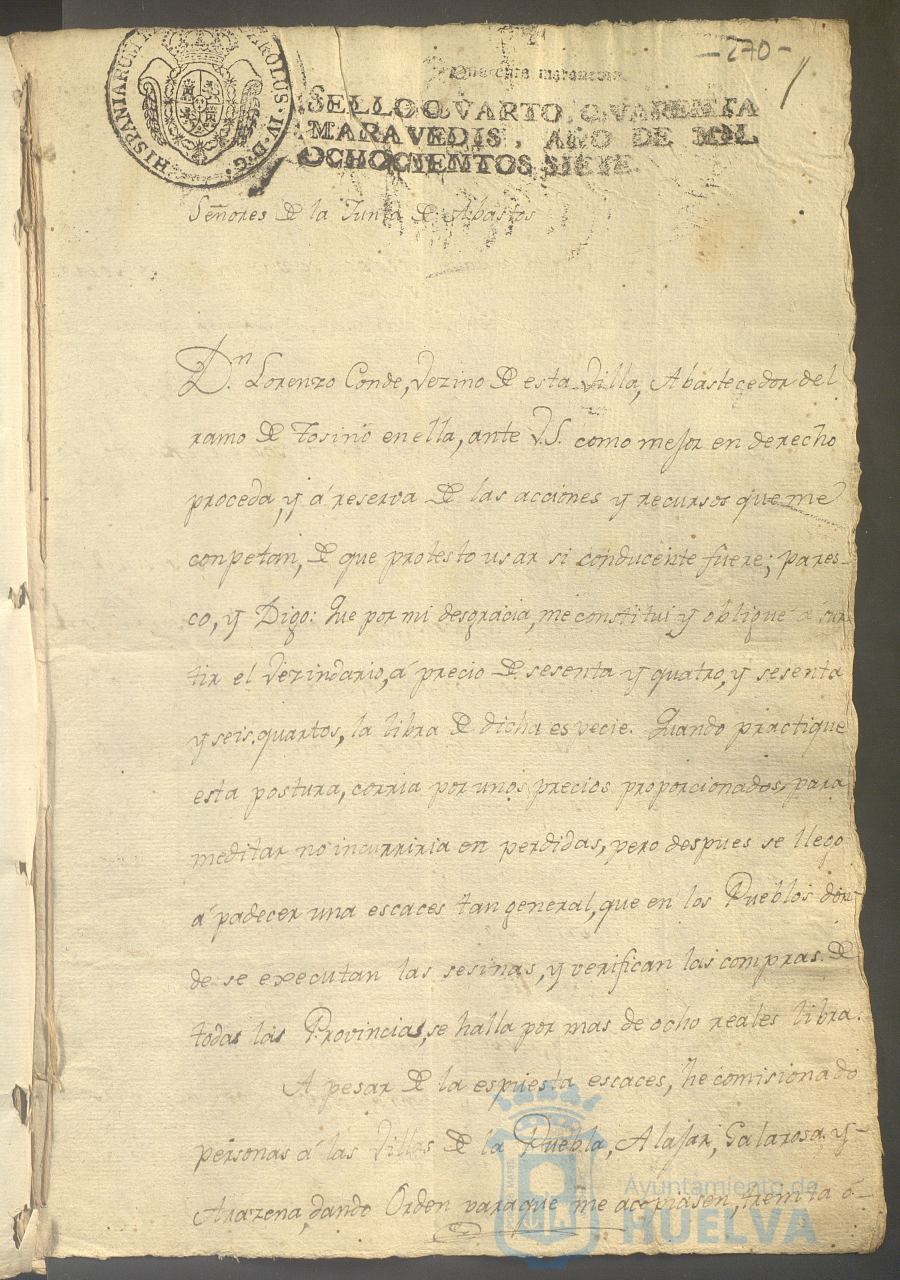 -270-
HISPANIARUM CAROLUS IV. D. G.
Quarenta maravedis.
SELLO QVARTO, QVARENTA
MARAVEDIS, AÑO DE MIL
OCHOCIENTOS SIETE.
Señores de la Junta de Abastos
Dn. Lorenzo Conde, Vezino de esta Villa, Abastecedor del
ramo de Tosino en ella, ante V.S. como mejor en derecho
proceda, y á reserva de las acciones y recursos que me
conpetan, de que protesto usar si conducente fuere; pares-
co, y Digo: Que por mi desgracia, me constitui y obligue a sur
tir el Vezindario, á precio de sesenta y quatro, y sesenta
y seis quartos, la libra de dicha especie. Quando practique
esta postura, corria por unos precios proporcionados, para
meditar no incurriria en perdidas, pero despues se llego
á padecer una escaces tan general, que en los Pueblos don-
de se executan las sesinas, y verifican las compras de
todas las Provincias, se halla por mas de ocho reales libra.
A pesar de la espuesta escaces, he comisionado
personas á las Villas de la Puebla, Alajar, Galarosa y
Arazena, dando Orden para que me acopiasen, treinta ó
Ayuntamiento de
HUELVA